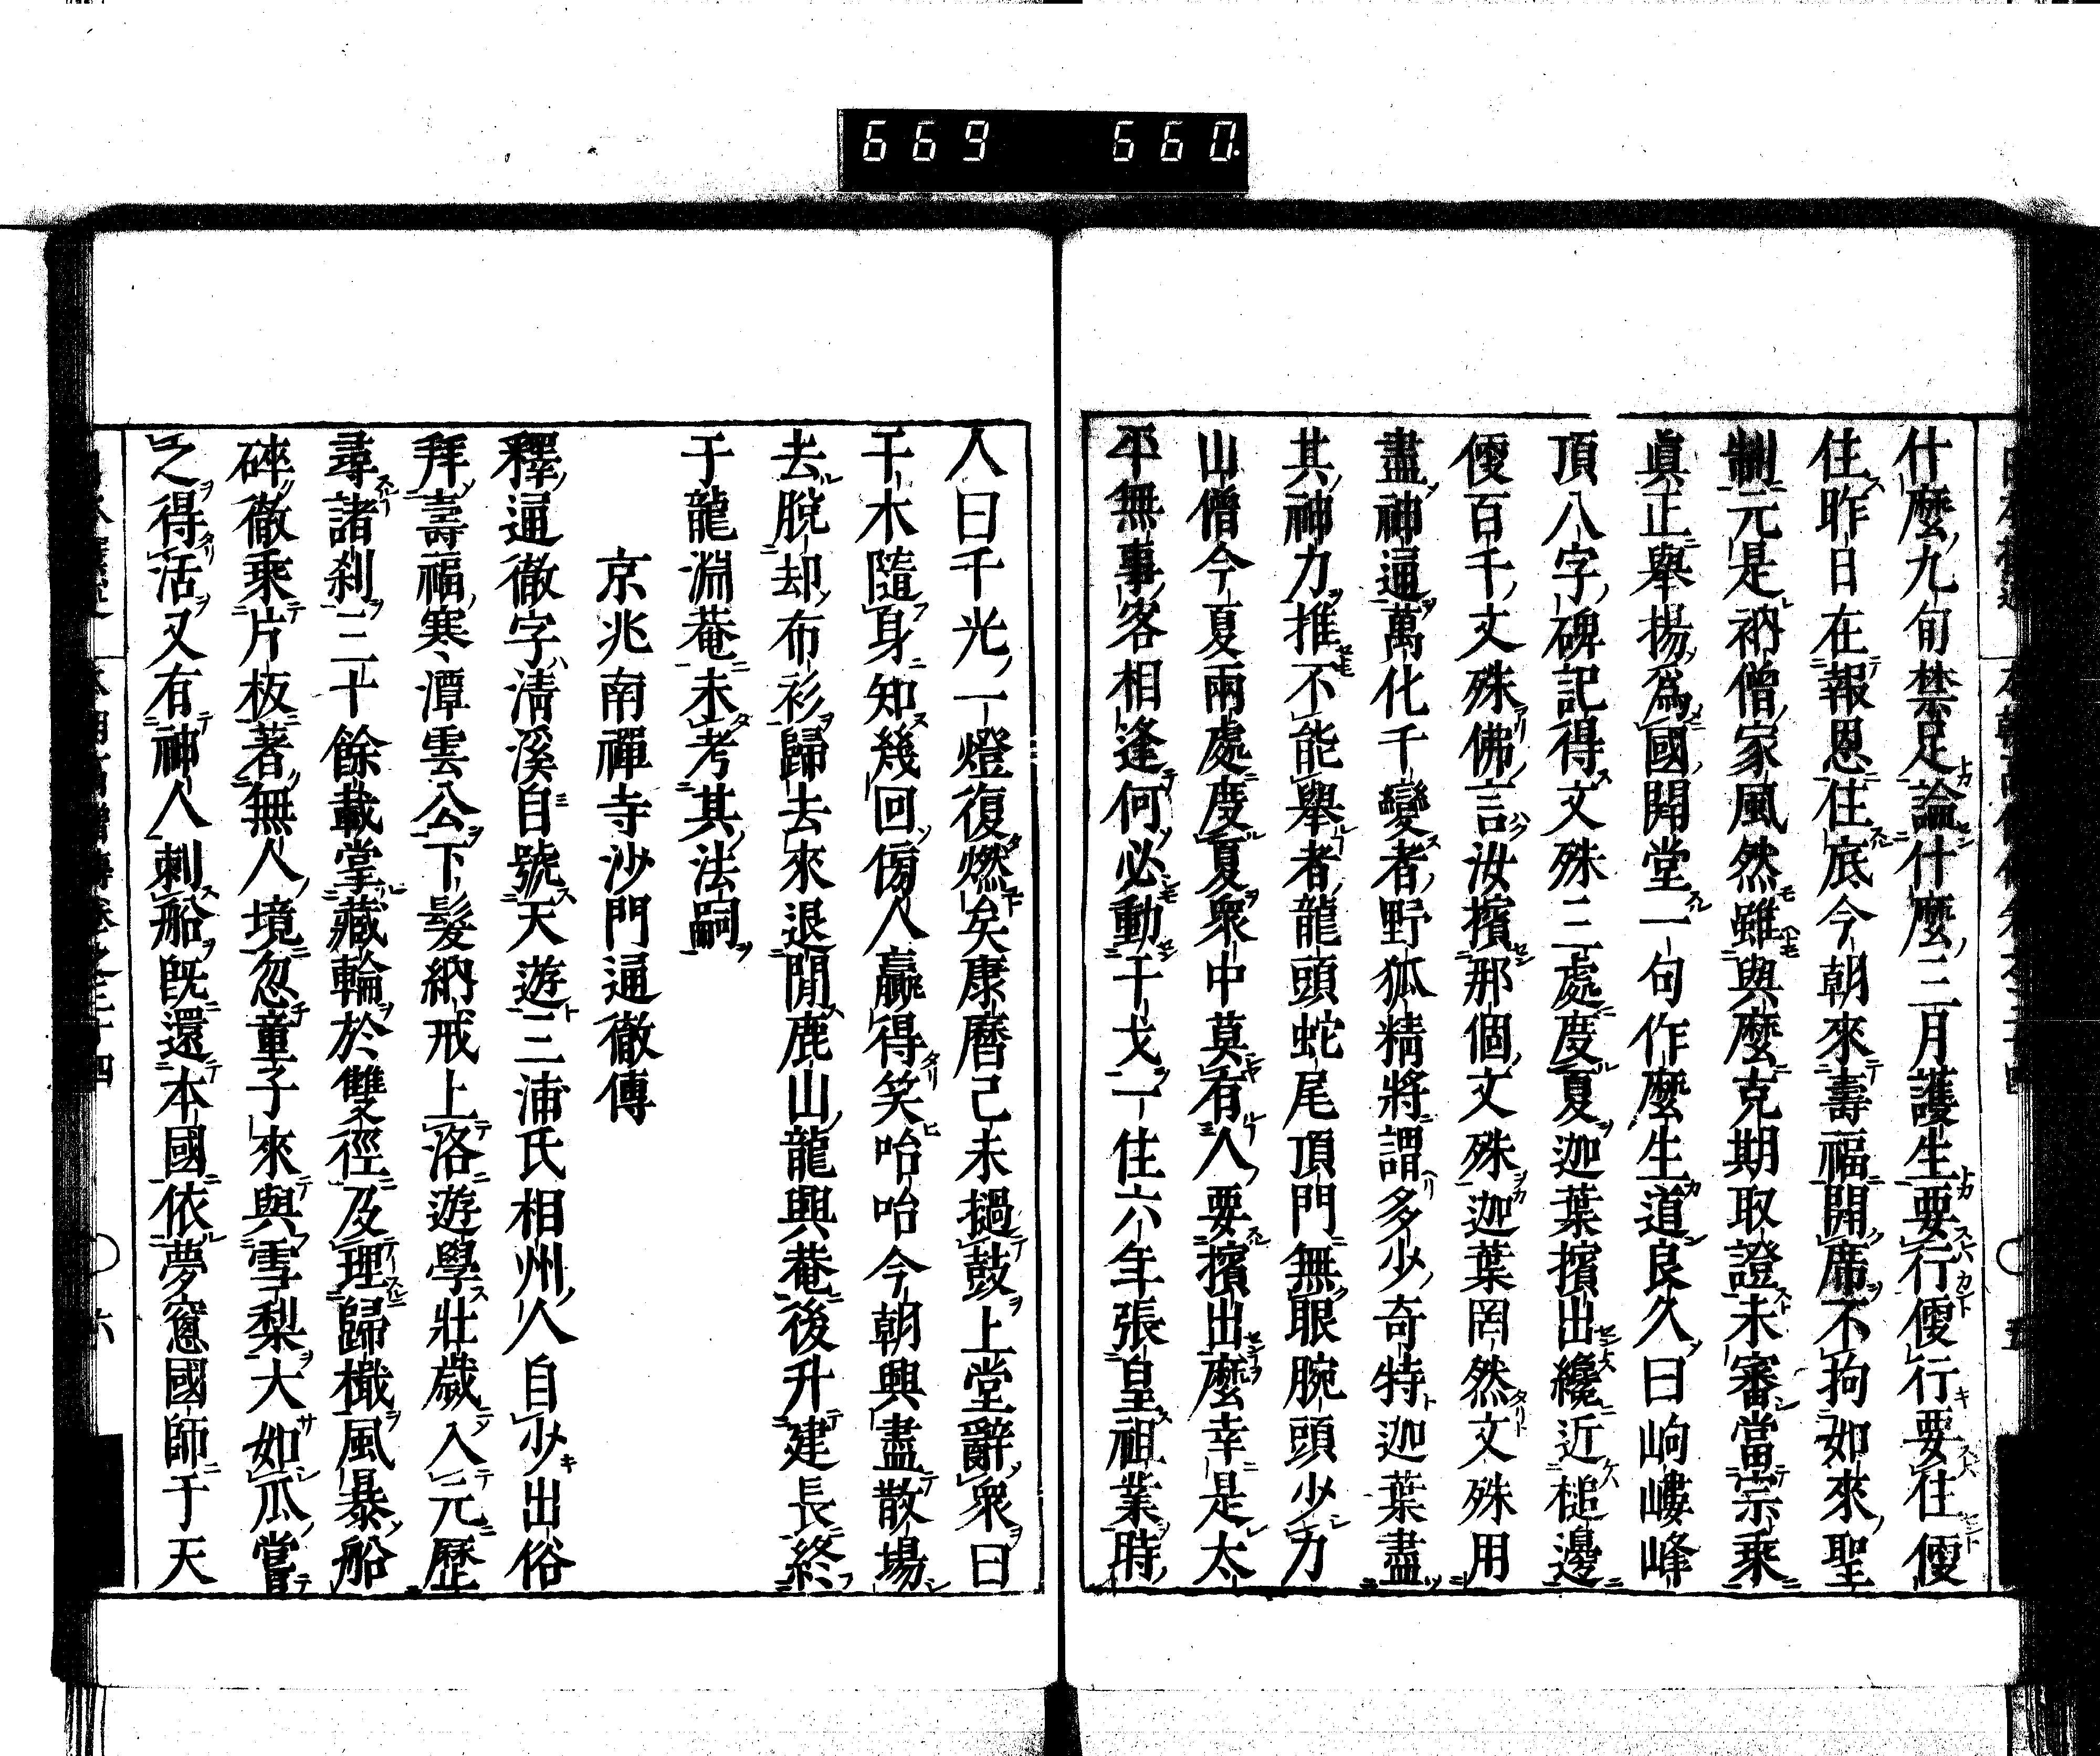 669 660
什麼九旬禁足論什麼三月護生要行便行要住便
住昨日在報恩住底今朝來壽福開席不拘如來聖
制元是衲僧家風然雖與麼克期取證未審當宗乘
眞正舉揚爲國開堂一句作麼生道良久曰岣嶁峰
頂八字碑記得文殊三處度夏迦葉擯出纔近槌邊
便百千文殊佛言汝擯那個文殊迦葉罔然文殊用
盡神通萬化千變者野狐精將謂多少奇特迦葉盡
其神力推不能舉者龍頭蛇尾頂門無眼腕頭少力
山僧今夏兩處度夏衆中莫有人要擯出麼幸是太
平無事客相逢何必動干戈一住六年張皇祖業時
人曰千光一燈復燃矣康曆己未撾鼓上堂辭衆曰
干木隨身知幾回傍人贏得笑咍咍今朝興盡散場
去脫却布衫歸去來退閒鹿山龍興菴後升建長終
于龍淵菴未考其法嗣
京兆南禪寺沙門通徹傳
釋通徹字清溪自號天遊三浦氏相州人自少出俗
拜壽福寒潭雲公下髮納戒上洛遊學壯歲入元歷
尋諸刹三十餘載掌藏輪於雙徑及理歸檝風暴船
碎徹乘片板著無人境忽童子來與雪梨大如瓜嘗
之得活又有神人刺船既還本國依夢窓國師于天